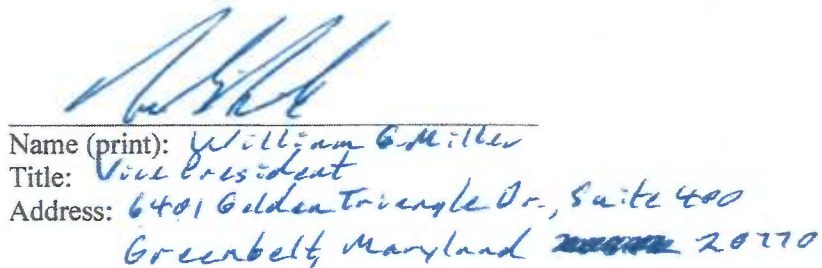 Name (print): William G Miller
Title: Vice President
Address: 6401 Golden Triangle Dr., Suite 400
Greenbelt, Maryland 20770